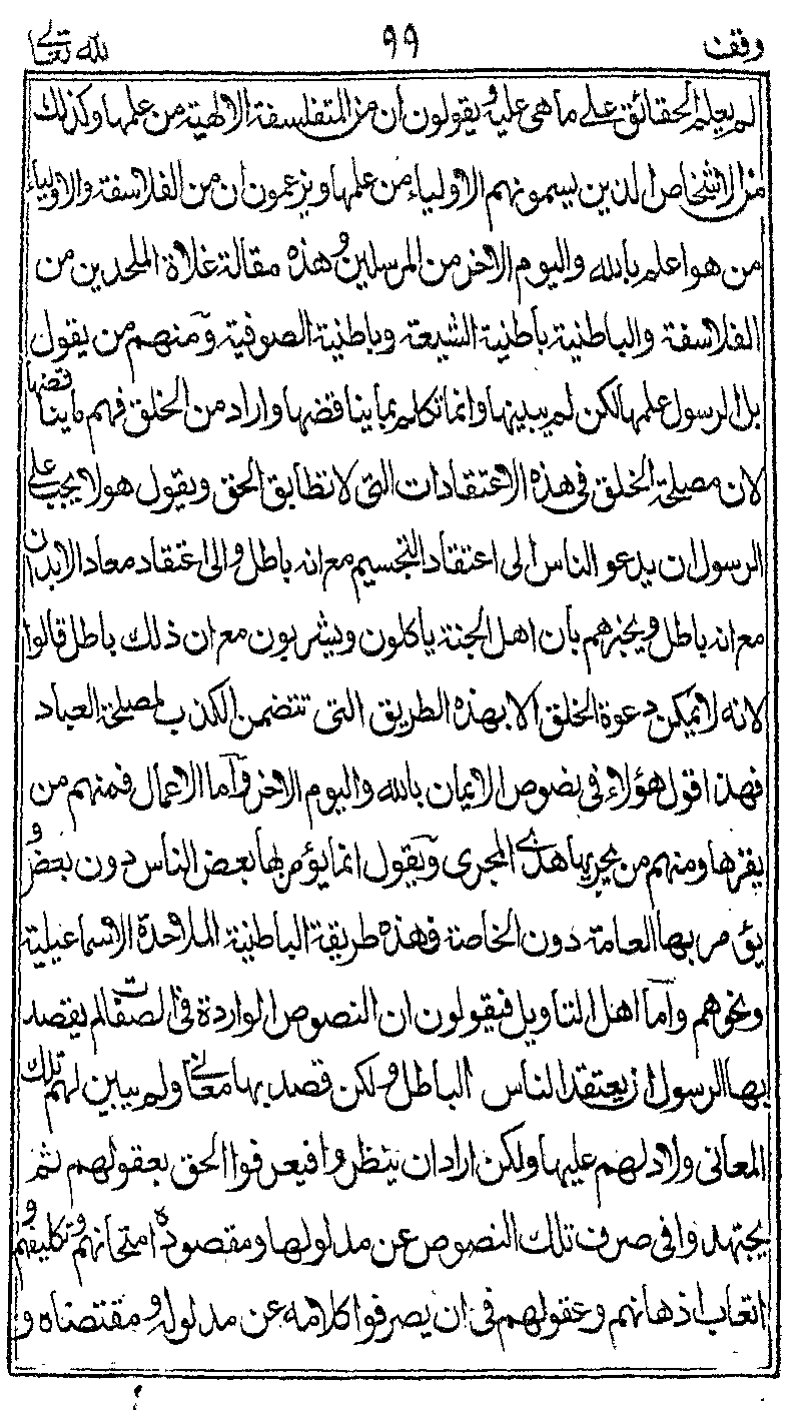 وقف ٩٩ لله تعالى
لم يعلم الحقائق على ما هي عليه ويقولون ان من المتفلسفة الالهية من علمها وكذلك
من الاشخاص الذين يسمونهم الاولياء من علمها ويزعمون ان من الفلاسفة والاولياء
من هو اعلم بالله واليوم الاخر من المرسلين وهذه مقالة غلاة الملحدين من
الفلاسفة والباطنية باطنية الشيعة وباطنية الصوفية ومنهم من يقول
بل الرسول علمها لكن لم يبينها وانما تكلم بما يناقضها واراد من الخلق فهم ما يناقضها
لان مصلحة الخلق في هذه الاعتقادات التي لا تطابق الحق ويقول هولا يجب على
الرسول ان يدعو الناس الى اعتقاد التجسيم مع انه باطل والى اعتقاد معاد الابدان
مع انه باطل ويخبرهم بان اهل الجنة ياكلون ويشربون مع ان ذلك باطل قالوا
لانه لا يمكن دعوة الخلق الا بهذه الطريق التي تتضمن الكذب لمصلحة العباد
فهذا قول هؤلاء في نصوص الايمان بالله واليوم الاخر واما الاعمال فمنهم من
يقرها ومنهم من يجريها هذى المجرى ويقول انما يؤمر بها بعض الناس دون بعض و
يؤمر بها العامة دون الخاصة فهذه طريقة الباطنية الملاحدة الاسماعيلية
ونحوهم واما اهل التاويل فيقولون ان النصوص الواردة في الصفات لم يقصد
بها الرسول ان يعتقد الناس الباطل ولكن قصد بها معاني ولم يبين لهم تلك
المعاني ولا دلهم عليها ولكن اراد ان ينظروا فيعرفوا الحق بعقولهم ثم
يجتهدوا في صرف تلك النصوص عن مدلولها ومقصوده امتحانهم وتكليفهم و
اتعاب اذهانهم وعقولهم في ان يصرفوا كلامه عن مدلوله ومقتضاه و